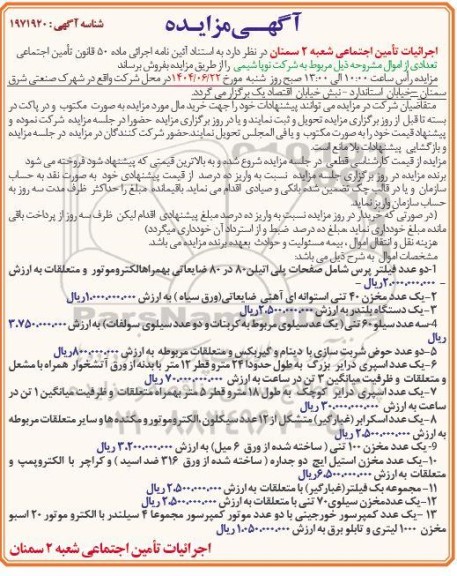 آگهی مزایده
شناسه آگهی : ۱۹۷۱۹۲۰
اجرائیات تأمین اجتماعی شعبه ۲ سمنان در نظر دارد به استناد آئین نامه اجرائی ماده ۵۰ قانون تأمین اجتماعی
تعدادی از اموال مشروحه ذیل مربوط به شرکت نوپا شیمی را از طریق مزایده بفروش برساند
مزایده رأس ساعت ۱۰:۰۰ الی ۱۳:۰۰ صبح روز شنبه مورخ ۱۴۰۴/۰۶/۲۲ در محل شرکت واقع در شهرک صنعتی شرق
سمنان – خیابان استاندارد - نبش خیابان اقتصاد یک برگزار می گردد.
متقاضیان شرکت در مزایده می توانند پیشنهادات خود را جهت خرید مال مورد مزایده به صورت مکتوب و در پاکت در
بسته تا قبل از روز برگزاری مزایده تحویل و ثبت نمایند و یا در روز برگزاری مزایده حضورا در جلسه مزایده شرکت نموده و
پیشنهاد قیمت خود را به صورت مکتوب و یا فی المجلس تحویل نمایند. حضور شرکت کنندگان در مزایده در جلسه مزایده
و بازگشایی پیشنهادات بلا مانع است.
مزایده از قیمت کارشناسی قطعی در جلسه مزایده شروع شده و به بالاترین قیمتی که پیشنهاد شود فروخته می شود
برنده مزایده در روز برگزاری جلسه مزایده نسبت به واریز ده درصد از قیمت پیشنهادی خود به صورت نقد به حساب
سازمان و یا در قالب چک تضمین شده بانکی و صیادی اقدام می نماید. باقیمانده مبلغ را حداکثر ظرف مدت سه روز به
حساب سازمان واریز نماید.
( در صورتی که خریدار در روز مزایده نسبت به واریز ده درصد مبلغ پیشنهادی اقدام لیکن ظرف سه روز از پرداخت باقی
مانده مبلغ خودداری نماید مبلغ ده درصد ضبط و از استرداد آن خودداری میگردد)
هزینه نقل و انتقال اموال ، بیمه مسئولیت و حوادث بعهده برنده مزایده می باشد.
مشخصات اموال به شرح ذیل می باشد:
۱-دو عدد فیلتر پرس شامل صفحات پلی اتیلن ۸۰ در ۸۰ ضایعاتی بهمراه الکتروموتور و متعلقات به ارزش
– ۲.۰۰۰.۰۰۰.۰۰۰ ریال –
۲-یک عدد مخزن ۴۰ تنی استوانه ای آهنی ضایعاتی (ورق سیاه ) به ارزش ۱.۰۰۰.۰۰۰.۰۰۰ ریال
۳-یک دستگاه بلندر به ارزش ۲.۵۰۰.۰۰۰.۰۰۰ ریال
۴-سه عدد سیلو ۶۰ تنی ( یک عدد سیلوی مربوط به کربنات و دو عدد سیلوی سولفات) به ارزش ۳.۷۵۰.۰۰۰.۰۰۰
ریال
۵-دو عدد حوض شربت سازی با دینام و گیربکس و متعلقات مربوطه به ارزش ۸۰۰.۰۰۰.۰۰۰ ریال
۶-یک عدد اسپری درایر بزرگ به طول حدودا ۲۴ متر و قطر ۱۲ متر با بدنه از ورق آتشخوار همراه با مشعل
و متعلقات و ظرفیت میانگین ۳ تن در ساعت به ارزش ۷۰.۰۰۰.۰۰۰.۰۰۰ ریال
۷-یک عدد اسپری درایر کوچک به طول ۱۸ متر و قطر ۵ متر بهمراه متعلقات و ظرفیت میانگین ۱ تن در
ساعت به ارزش ۳۰.۰۰۰.۰۰۰.۰۰۰ ریال
۸-یک عدد اسکرابر (غبارگیر) متشکل از ۱۲ عدد سیکلون، الکتروموتور و مکنده ها و سایر متعلقات مربوطه
به ارزش ۲.۵۰۰.۰۰۰.۰۰۰ ریال
۹-یک عدد مخزن ۱۰۰ تنی ( ساخته شده از ورق ۶ میل) به ارزش ۳.۲۰۰.۰۰۰.۰۰۰ ریال
۱۰-یک عدد مخزن استیل ایج دو جداره ( ساخته شده از ورق ۳۱۶ ضد اسید ) و کراچر با الکتروپمپ و
متعلقات به ارزش ۶.۵۰۰.۰۰۰.۰۰۰ ریال
۱۱-مجموعه بک فیلتر (غبارگیر) با متعلقات به ارزش ۲.۵۰۰.۰۰۰.۰۰۰ ریال
۱۲-یک عدد مخزن سیلوی ۷۰ تنی با متعلقات به ارزش ۲.۵۰۰.۰۰۰.۰۰۰ ریال
۱۳-یک عدد کمپرسور خورجینی با دو عدد موتور کمپرسور مجموعا ۴ سیلندر با الکترو موتور ۲۰ اسبو
مخزن ۱۰۰۰ لیتری و تابلو برق به ارزش ۱.۰۵۰.۰۰۰.۰۰۰ ریال
اجرائیات تأمین اجتماعی شعبه ۲ سمنان